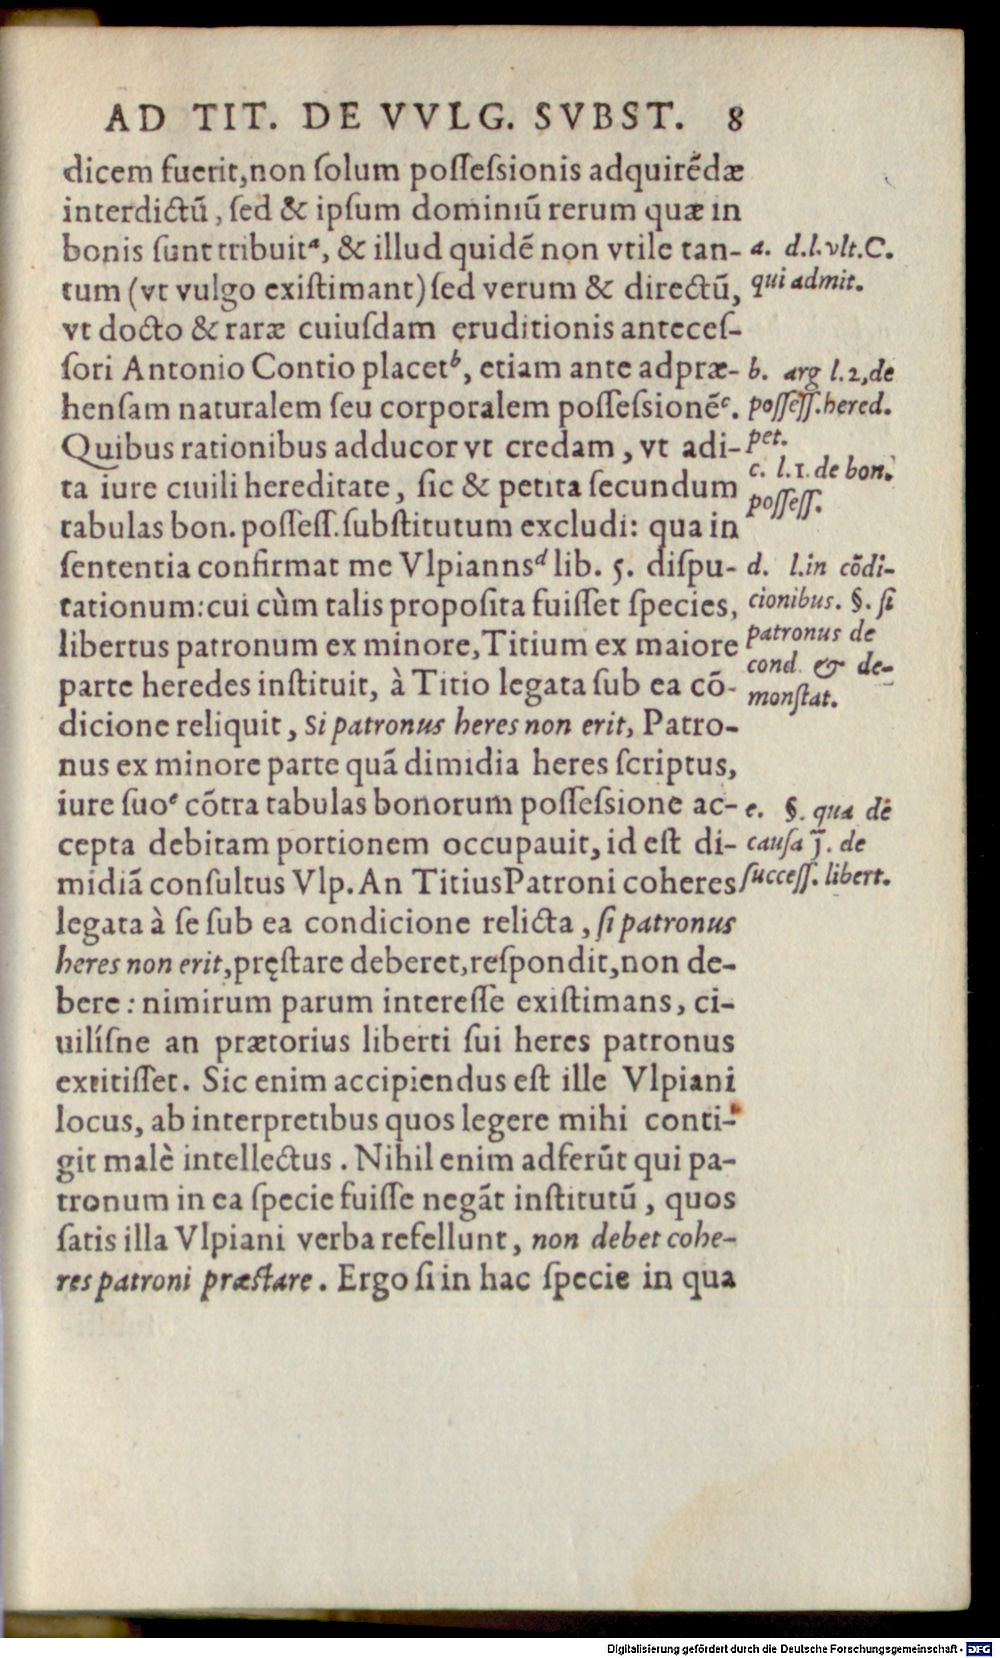 AD TIT. DE VVLG. SVBST. 8
dicem fuerit,non ſolum poſſeſsionis adquirēdæ
interdictū, ſed & ipſum dominiū rerum quæ in
bonis ſunt tribuitᵃ, & illud quidē non vtile tan-
tum (vt vulgo exiſtimant) ſed verum & directū,
vt docto & raræ cuiuſdam eruditionis anteceſ-
ſori Antonio Contio placetᵇ, etiam ante adpræ-
henſam naturalem ſeu corporalem poſſeſsionēᶜ.
Quibus rationibus adducor vt credam, vt adi-
ta iure ciuili hereditate, ſic & petita ſecundum
tabulas bon. poſſeſſ. ſubſtitutum excludi: qua in
ſententia confirmat me Vlpiannsᵈ lib. 5. diſpu-
tationum: cui cùm talis propoſita fuiſſet ſpecies,
libertus patronum ex minore, Titium ex maiore
parte heredes inſtituit, à Titio legata ſub ea cō-
dicione reliquit, Si patronus heres non erit, Patro-
nus ex minore parte quā dimidia heres ſcriptus,
iure ſuoᵉ cōtra tabulas bonorum poſſeſsione ac-
cepta debitam portionem occupauit, id eſt di-
midiā conſultus Vlp. An Titius Patroni coheres
legata à ſe ſub ea condicione relicta, ſi patronus
heres non erit, pręſtare deberet, reſpondit, non de-
bere: nimirum parum intereſſe exiſtimans, ci-
uilíſne an prætorius liberti ſui heres patronus
extitiſſet. Sic enim accipiendus eſt ille Vlpiani
locus, ab interpretibus quos legere mihi conti-
git malè intellectus. Nihil enim adferūt qui pa-
tronum in ea ſpecie fuiſſe negāt inſtitutū, quos
ſatis illa Vlpiani verba refellunt, non debet cohe-
res patroni præſtare. Ergo ſi in hac ſpecie in qua
a. d.l.vlt.C.
qui admit.
b. arg l.2,de
poſſeſſ.hered.
pet.
c. l.1.de bon.
poſſeſſ.
d. l.in cōdi-
cionibus. §. ſi
patronus de
cond & de-
monſtat.
e. §. qua de
cauſa j̄. de
ſucceſſ. libert.
Digitalisierung gefördert durch die Deutsche Forschungsgemeinschaft - DFG